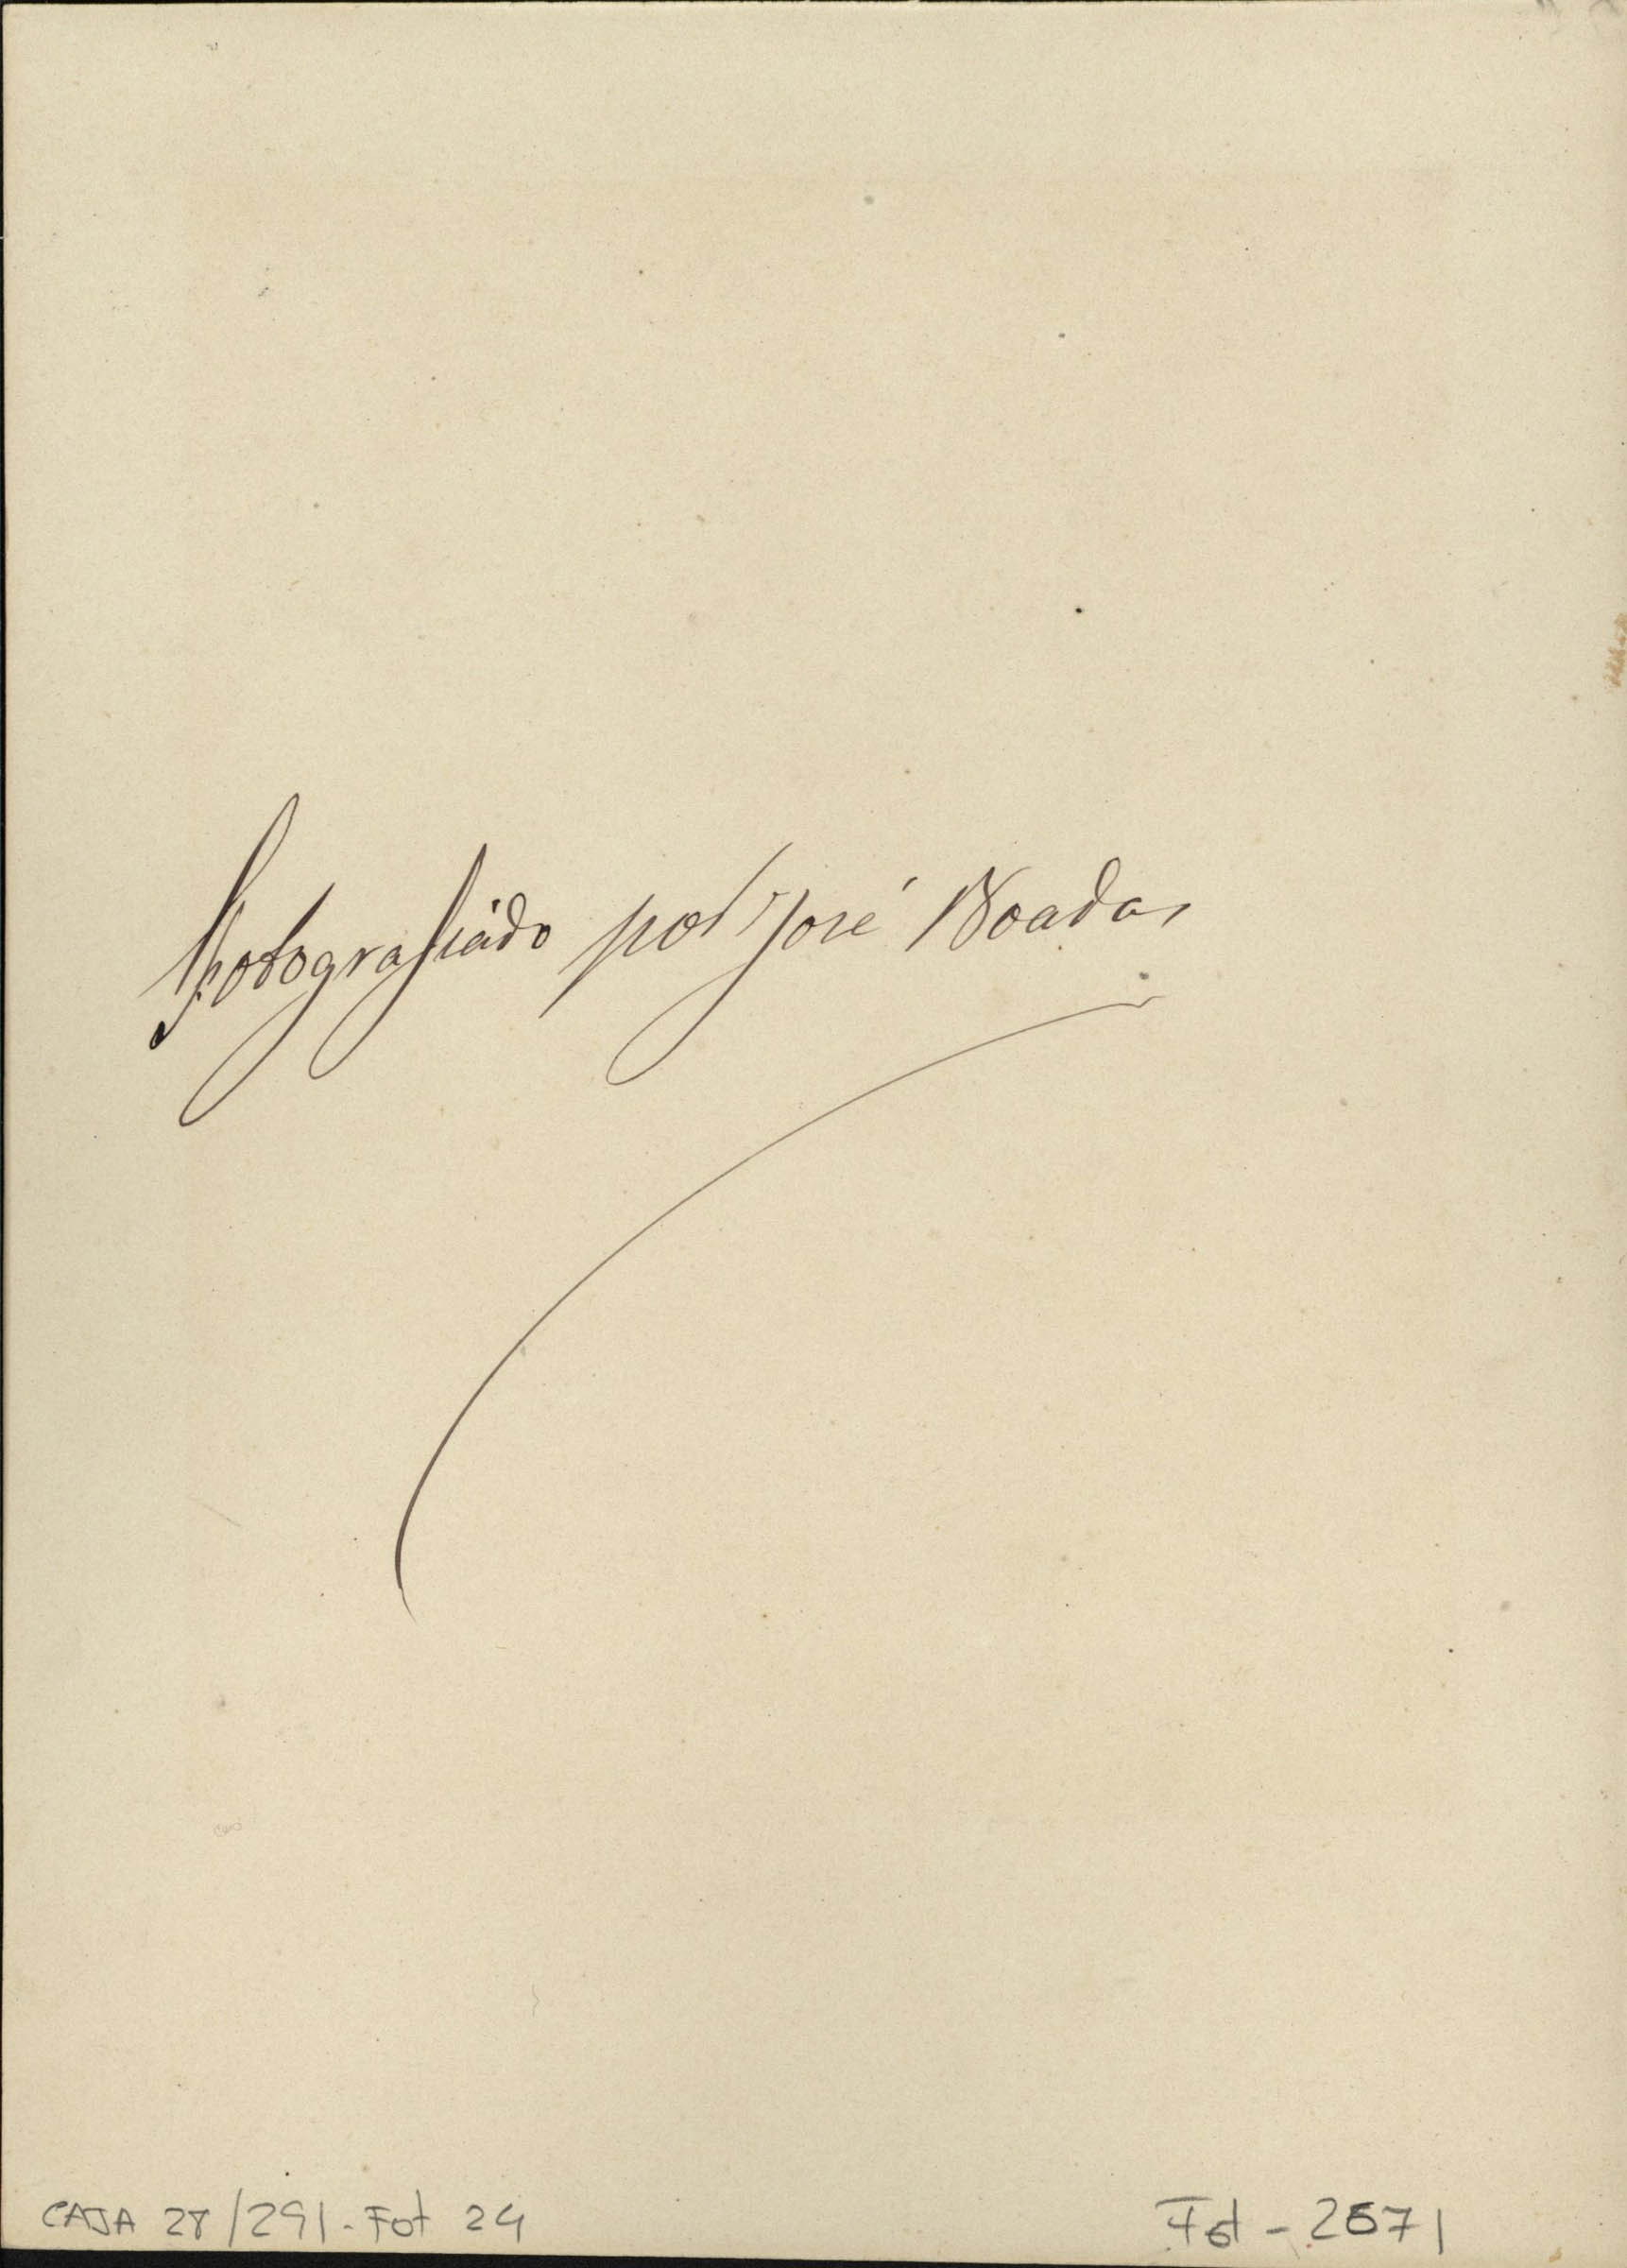 Fotografiado por José Boadas
CAJA 28/291-Fot 24
Fot-2671